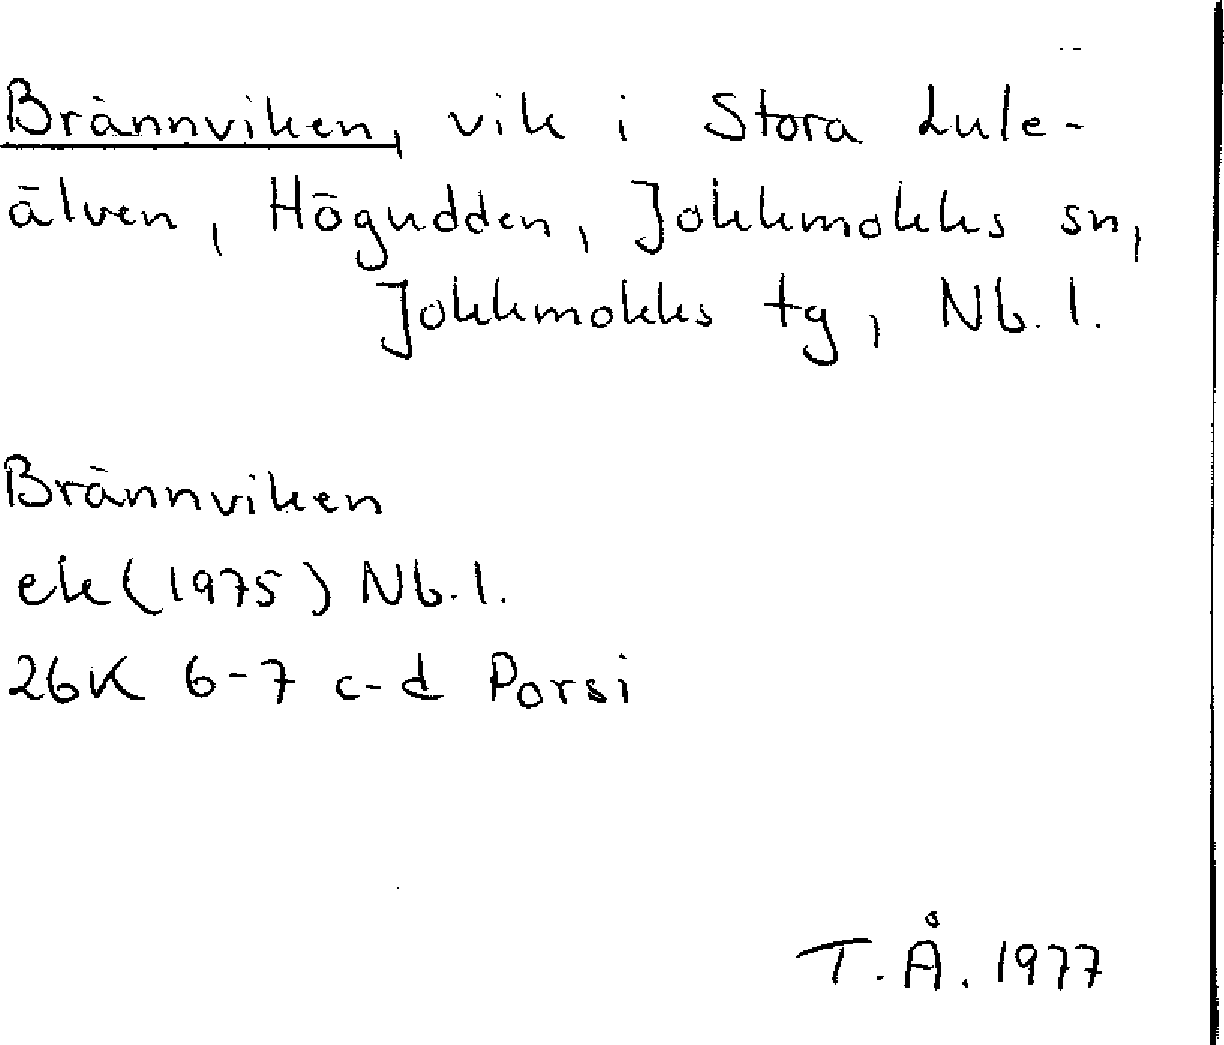 Brännviken, vik i Stora Lule-
älven, Högudden, Jokkmokks sn,
Jokkmokks tg, Nb. l.
Brännviken
ek (1975) Nb. l.
26K 6-7 c-d Porsi
T. Å. 1977